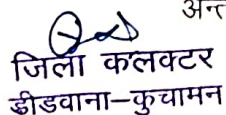 अन्त
जिला कलक्टर
डीडवाना-कुचामन